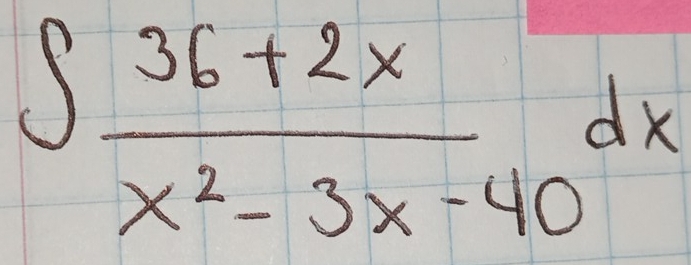 ∫ 36+2x / x²-3x-40 dx